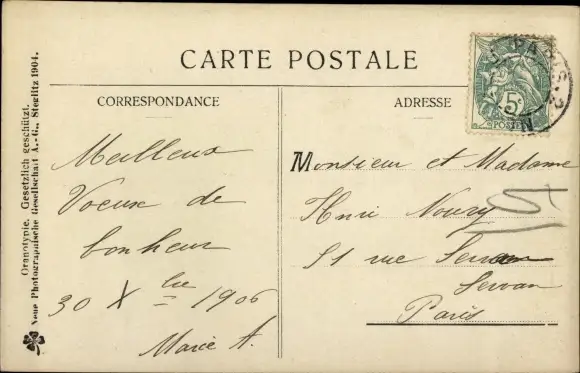 CARTE POSTALE
CORRESPONDANCE
ADRESSE
Meilleurs
Voeux de
bonheur
30 Xbre 1906
Marie A.
Monsieur et Madame
Henri Noury
51 rue
Servan
Paris
15
5c
POSTES
PARIS
Oranotypie. Gesetzlich geschützt.
Neue Photographische Gesellschaft A.-G., Steglitz 1904.